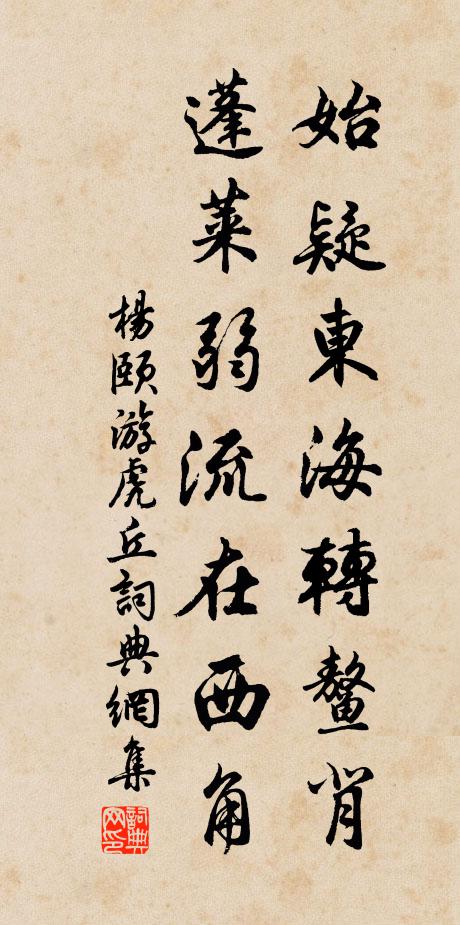 始疑東海轉鼇背
蓬萊弱流在西角
楊頤游虎丘詞典網集
詞典網印